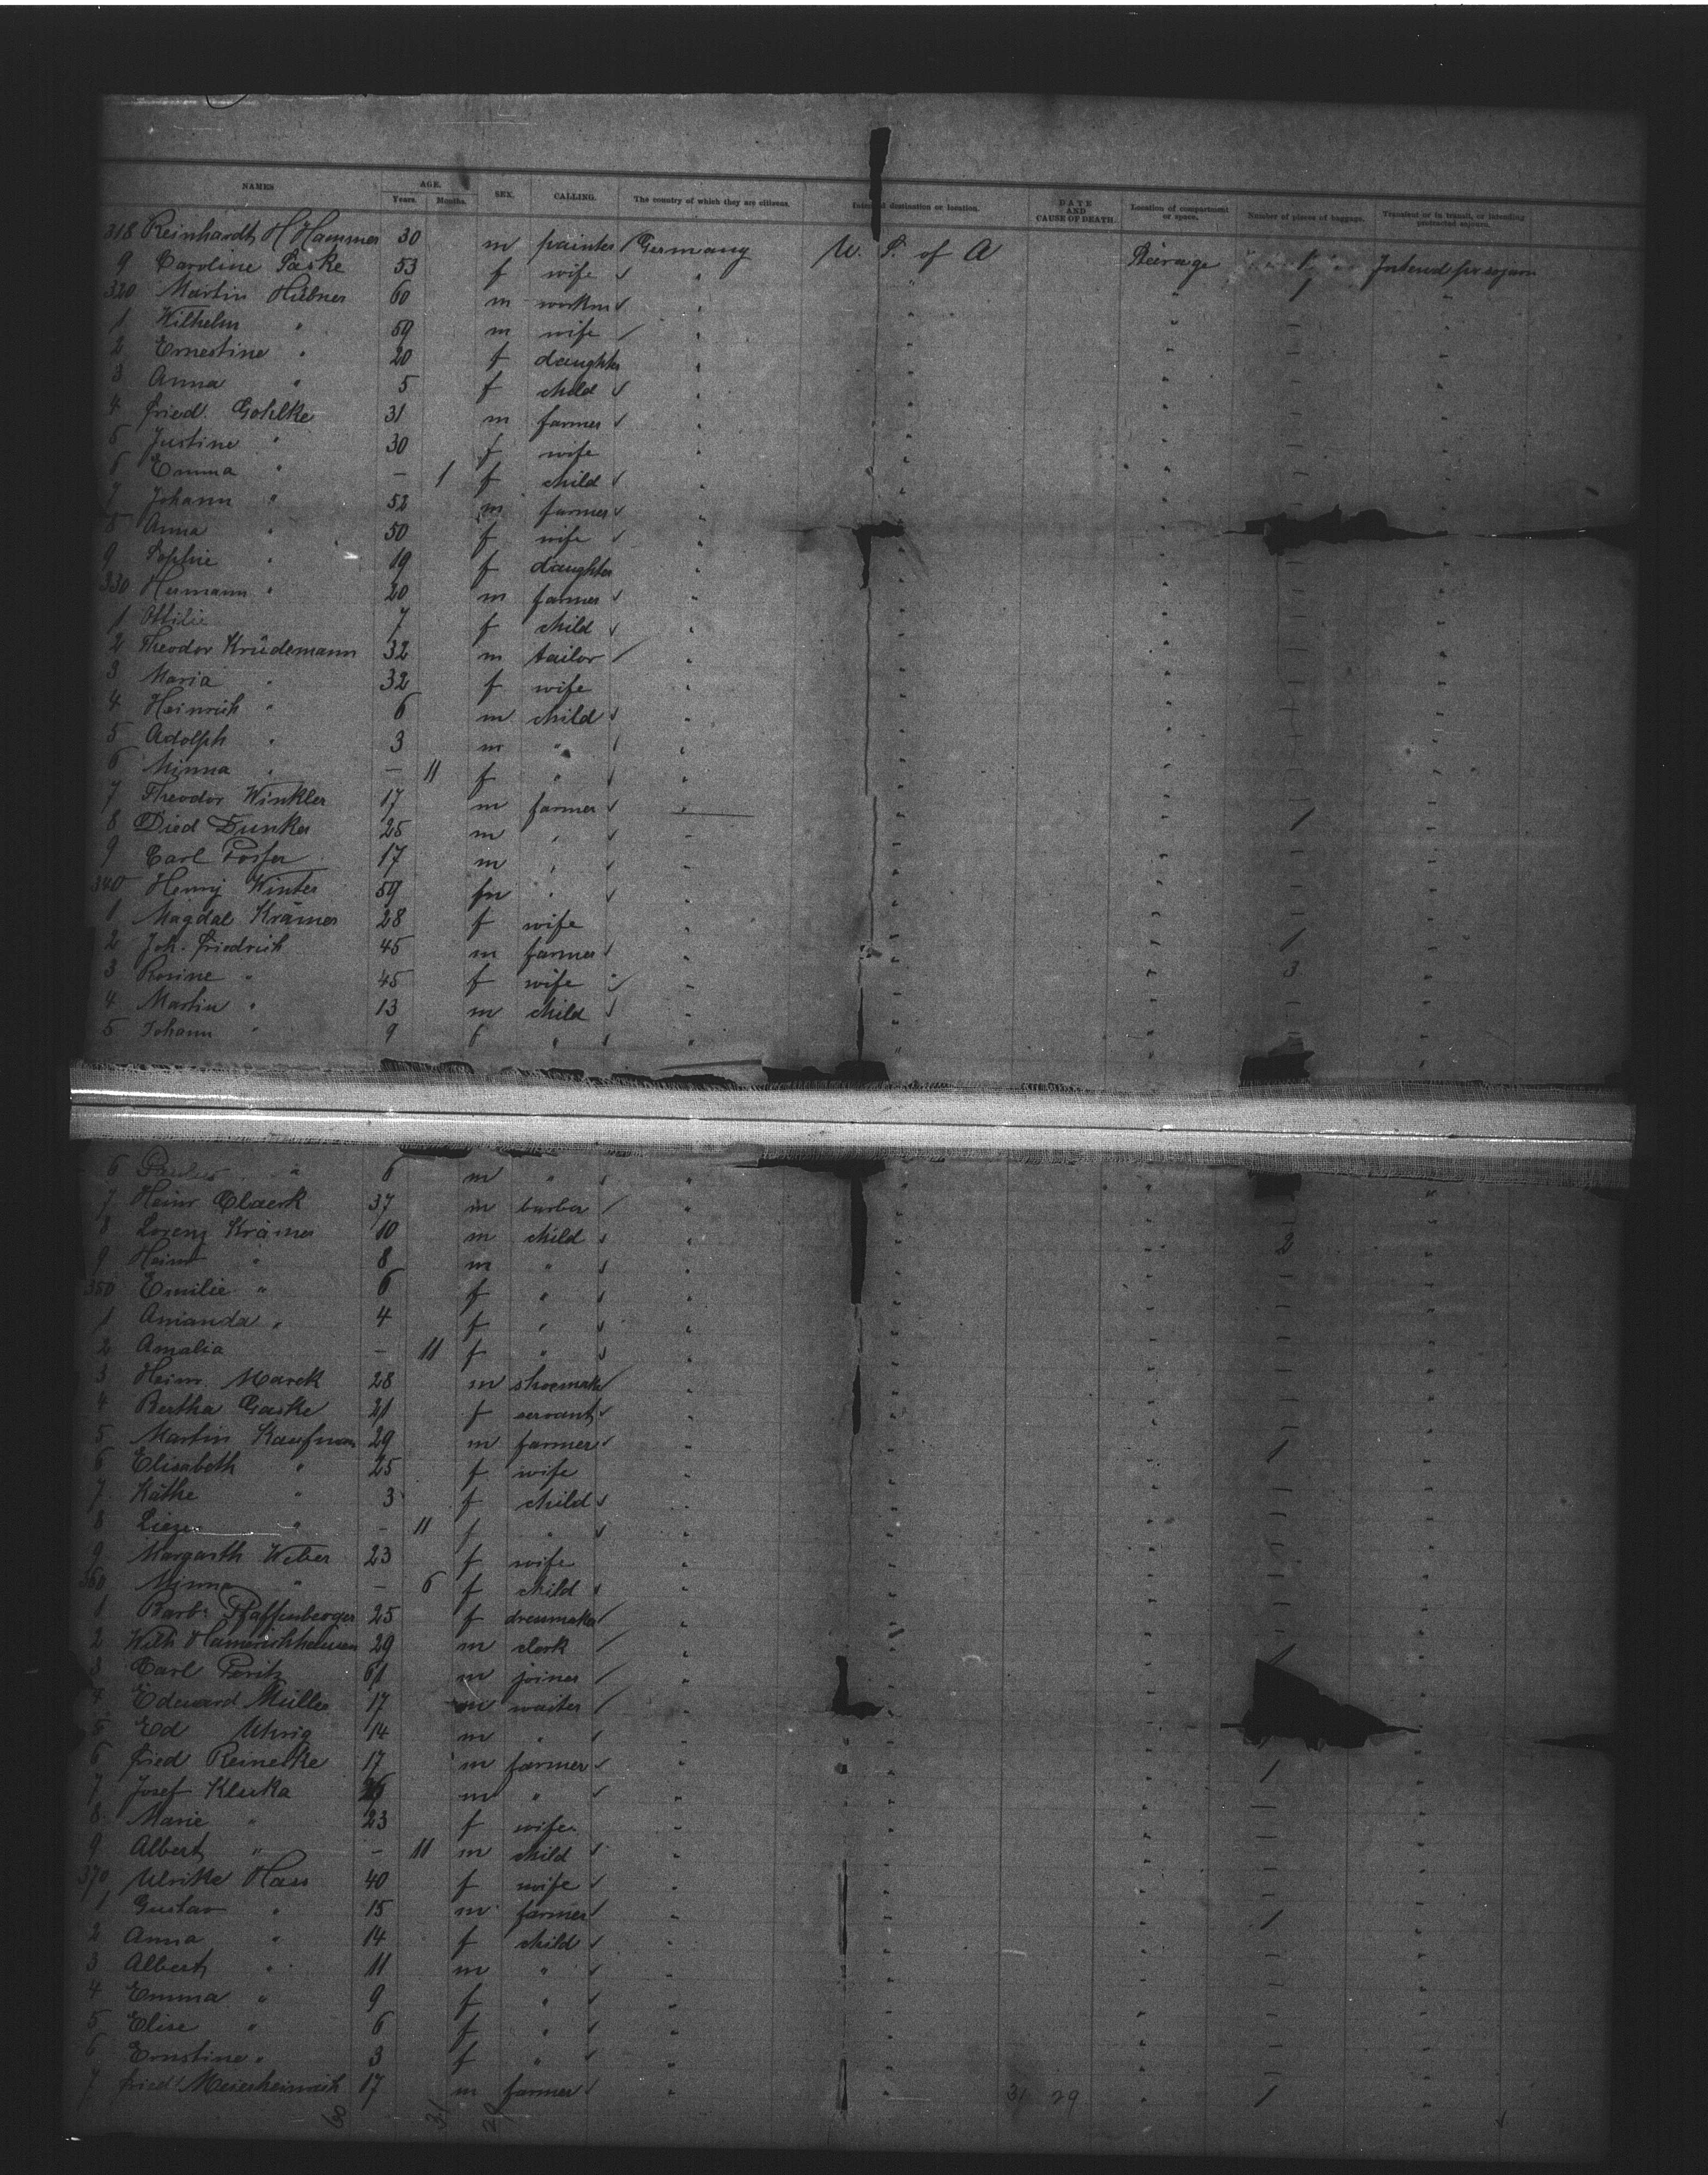 NAMES AGE. Years. Months. SEX. CALLING. The country of which they are citizens. destination or location. DATE AND CAUSE OF DEATH. Location of compartment or space. Number of pieces of baggage. Transient or in transit, or intending protracted sojourn.
318 Reinhardt H Hammer 30 m painter Germany U. S. of A Steerage 1
9 Caroline 53 f wife "
320 Martin Hübner 60 m workm " 1
1 Wilhelm " 59 m wife "
2 Ernestine " 20 f daughter "
3 Anna " 5 f child "
4 Fried. Gohlke 31 m farmer "
5 Justine " 30 f wife "
6 Emma " — 1 f child "
7 Johann " 52 m farmer "
8 Anna " 50 f wife "
9 Sophie " 19 f daughter "
330 Hermann " 20 m farmer "
1 Ottilie 7 f child "
2 Theodor Krüdemann 32 m tailor "
3 Maria " 32 f wife "
4 Heinrich " 6 m child "
5 Adolph " 3 m " "
6 Minna " — 11 f " "
7 Theodor Winkler 17 m farmer "
8 Died Dunker 25 m " " 1
9 Carl 17 m " "
340 Henry Winter 59 m " "
1 Magdal Krämer 28 f wife "
2 Joh. Friedrich 45 m farmer " 1
3 Rosine " 45 f wife " 3
4 Martin " 13 m child "
5 Johann " 9 f " "
6 " 6 m " "
7 Heinr 37 m barber "
8 Lorenz Krämer 10 m child " 2
9 Heinr " 8 m " "
350 Emilie " 6 f " "
1 Amanda " 4 f " "
2 Amalia — 11 f " "
3 Heinr. Marck 28 m shoemak "
4 Bertha Gaske 21 f servant "
5 Martin Kaufman 29 m farmer " 1
6 Elisabeth " 25 f wife "
7 Käthe " 3 f child "
8 " — 11 f " "
9 Margarth Weber 23 f wife "
360 Minna " — 6 f child "
1 Barb. Pfaffenberger 25 f dressmaker "
2 Wilh 29 m clerk " 1
3 Carl 61 m joiner "
4 Edward Müller 17 m waiter "
5 Ed Uhrig 14 m " "
6 Fried Reinecke 17 m farmer " 1
7 Josef Kluka m " "
8 Marie " 23 f wife "
9 Albert " — 11 m child "
370 Ulrike Hass 40 f wife "
1 Gustav " 15 m farmer " 1
2 Anna " 14 f child "
3 Albert " 11 m " "
4 Emma " 9 f " "
5 Elise " 6 f " "
6 Ernstine " 3 f " "
7 Fried Meierheinrich 17 m farmer " 31 29 1